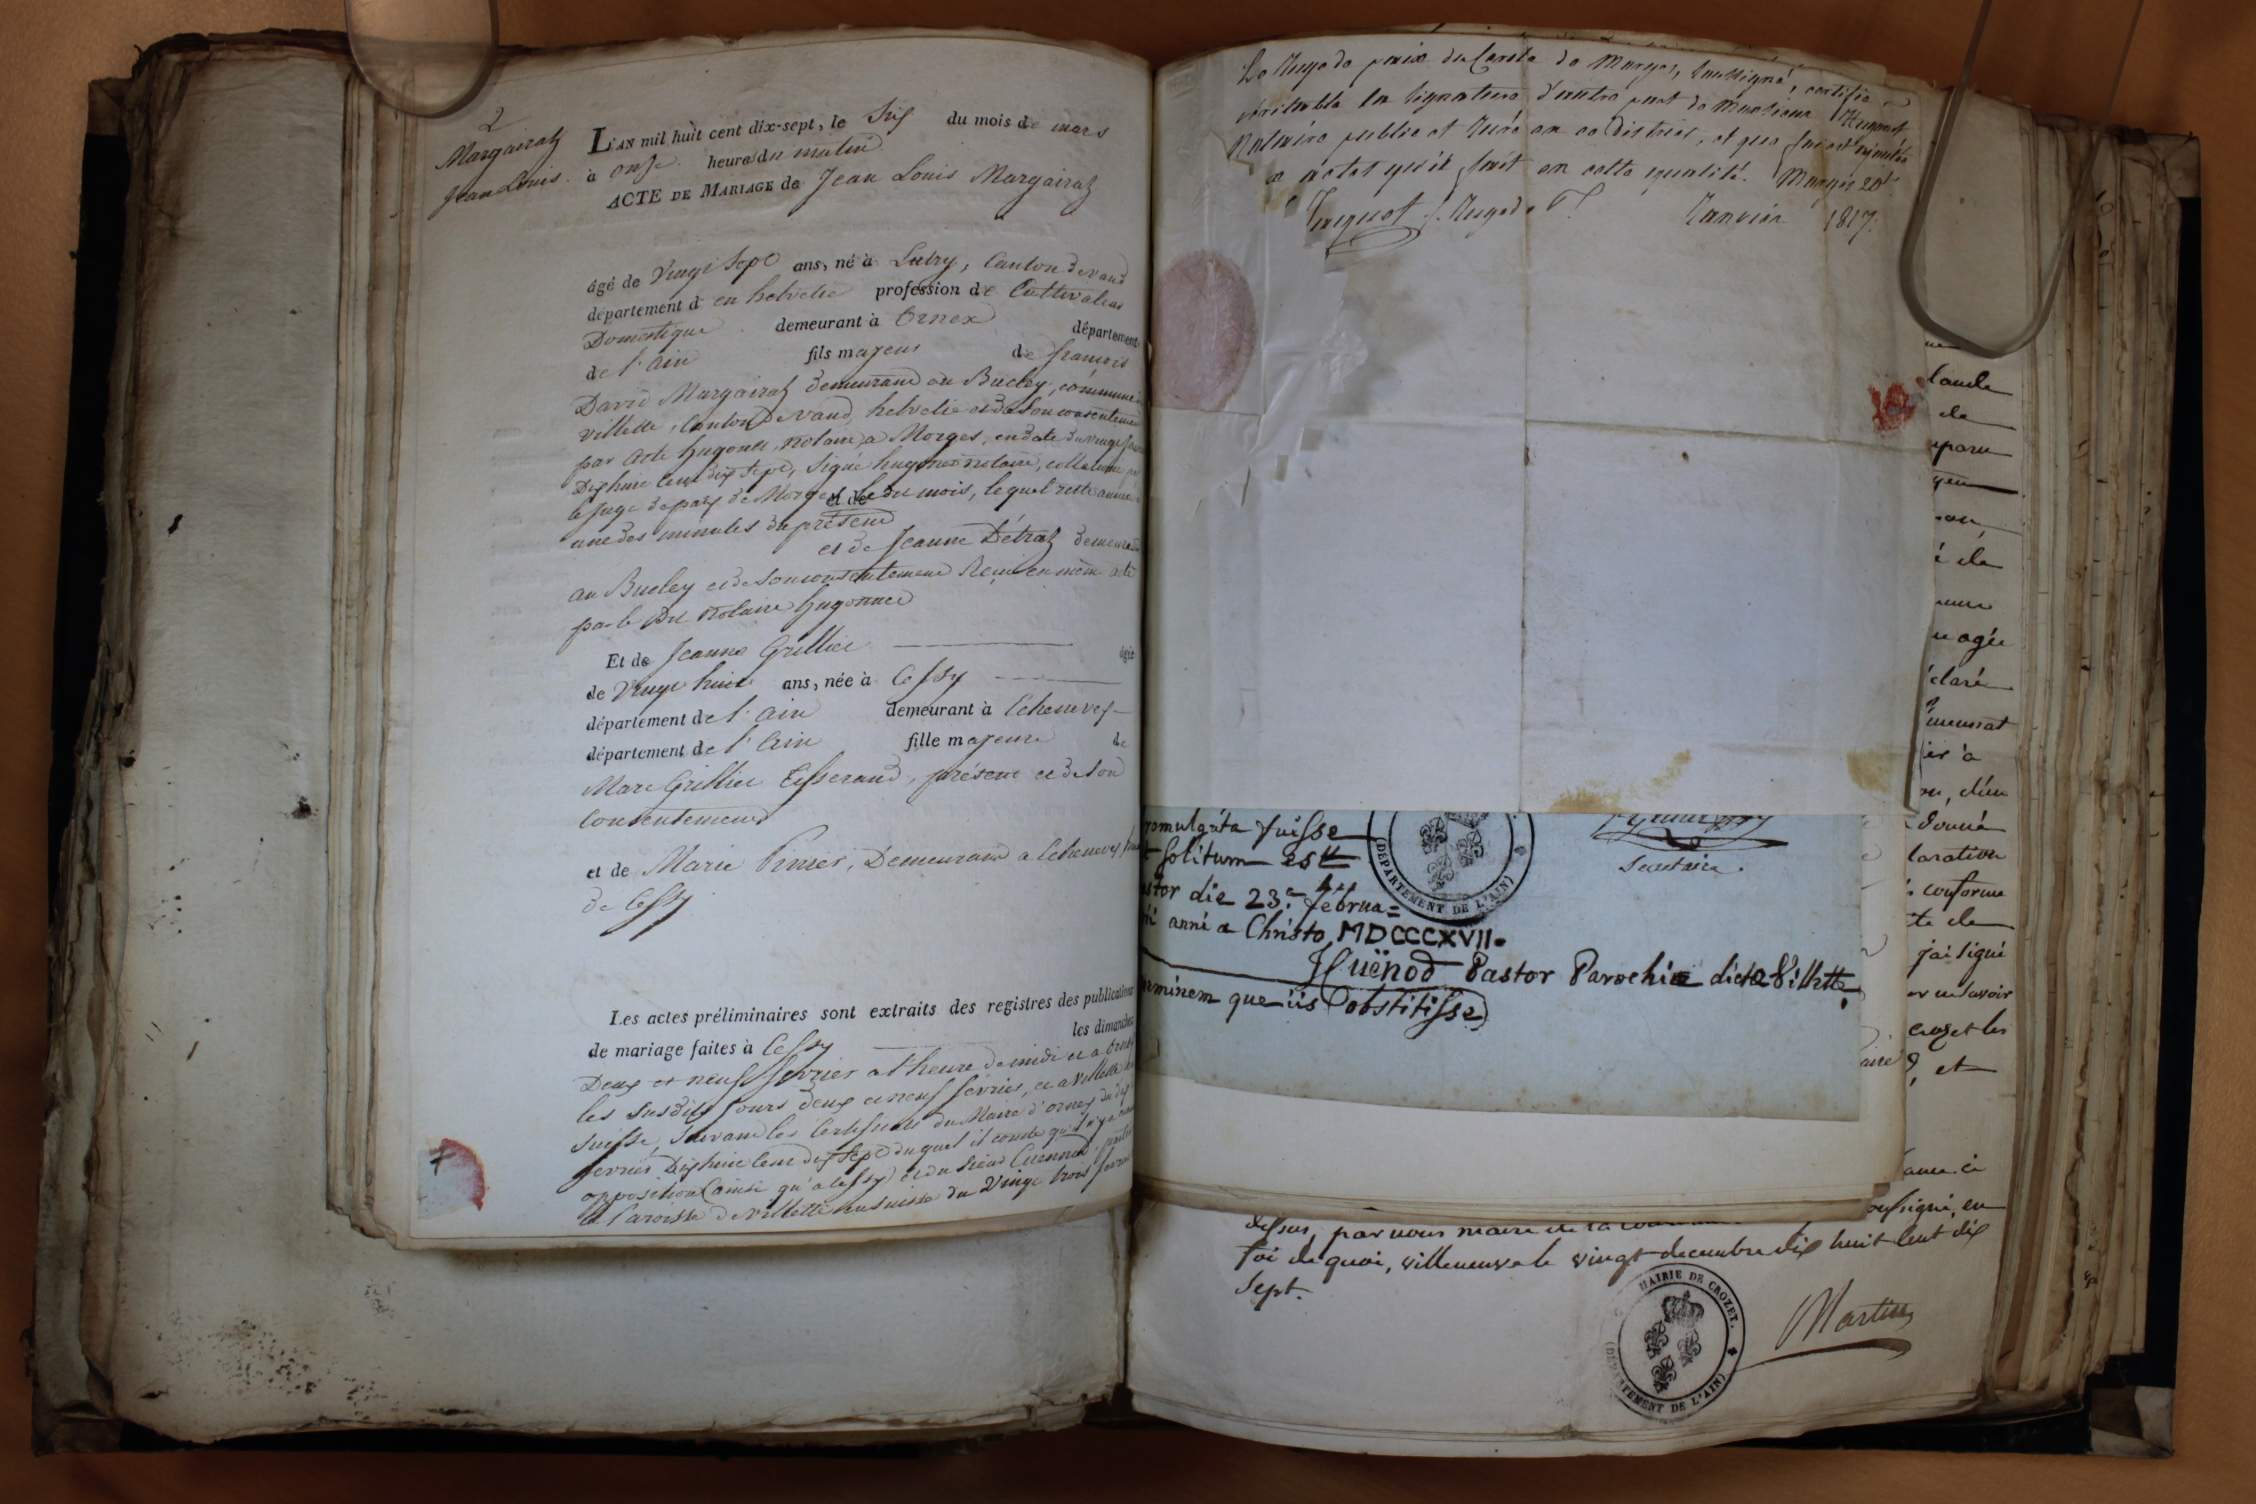 2
Margairaz
Jean Louis.
L'AN mil huit cent dix-sept, le Six du mois de mars
à onze heure du matin
ACTE DE MARIAGE de Jean Louis Margairaz
âgé de Vingt Sept ans, né à Lutry, Canton de vaud
département d en helvetie profession de Cultivateur
Domestique demeurant à Ornex département
de l'ain fils majeur de francois
David Margairaz demeurant au Bucley, commune
villette, Canton de vaud, helvetie et de son consentement
par acte hugonet, notaire a Morges, en date du vingt
Dixhuit Cent dix Sept, signé hugonet notaire,
le juge de paix de Morges le du mois, lequel reste annexé
et de
une des minutes du présent
et de Jeanne Détraz demeurant
au Bucley et de son consentement Reçu en même acte
par le Dit Notaire hugonnet
Et de Jeanne Grillier âgée
de Vingt huit ans, née à Cessy
département de l'ain demeurant à Echenevex
département de l'ain fille majeure de
Marc Grillier Tisserand, présent et de son
Consentement
et de Marie Pinier, Demeurant a Echenevex
de Cessy
Les actes préliminaires sont extraits des registres des publications
de mariage faites à Cessy les dimanches
Deux et neuf février a l'heure de midi et a
les susdits Jours deux et neuf février, et a villette
Suisse, Suivant les Certificats du Maire d'ornex du dix
fevrier Dixhuit Cent dix Sept duquel il conste qu'il n'y a
opposition (ainsi qu'a Cessy) et du Sieur Cuennod,
de la Paroisse de villette en Suisse du Vingt trois
Le Juge de paix du Cercle de Morges, soussigné, certifie
véritable la signature d'autre part de Monsieur Hugonet
Notaire public et Juré en ce District, et que foi est ajoutée
a actes qu'il fait en cette qualité. Morges 20e
Janvier 1817.
romulgáta fuisse
solitum est
stor die 23.a februa=
anni a Christo MDCCCXVII.
Cuënod Pastor Parochiæ dictæ Villette
minem que iis obstitisse)
(DÉPARTEMENT DE L'AIN)
Secretaire.
laude
de
mparu
é de
agée
claré
er à
donné
laration
conforme
te de
j'ai signé
savoir
et les
et
soussigné, en
dessus, par nous maire de la
foi de quoi, villeneuve le vingt decembre dix huit cent dix
Sept.
MAIRIE DE CROZET.
(DÉPARTEMENT DE L'AIN)
Martin